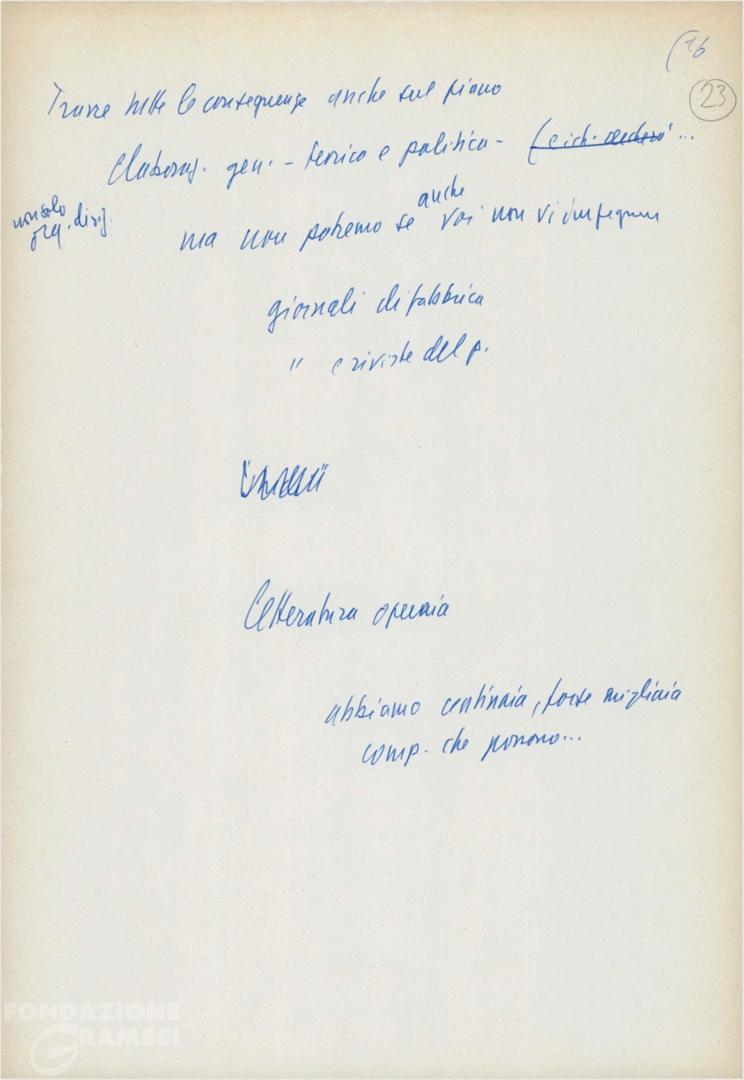 (16
23
Trarre tutte le conseguenze anche sul piano
Elaboraz. gen. - teorico e politica - (e ichi
non solo
org. dirig.
anche
ma non potremo se voi non vi impegnam
giornali di fabbrica
" e riviste del p.
Letteratura operaia
abbiamo centinaia, forse migliaia
comp. che possono...
FONDAZIONE
GRAMSCI